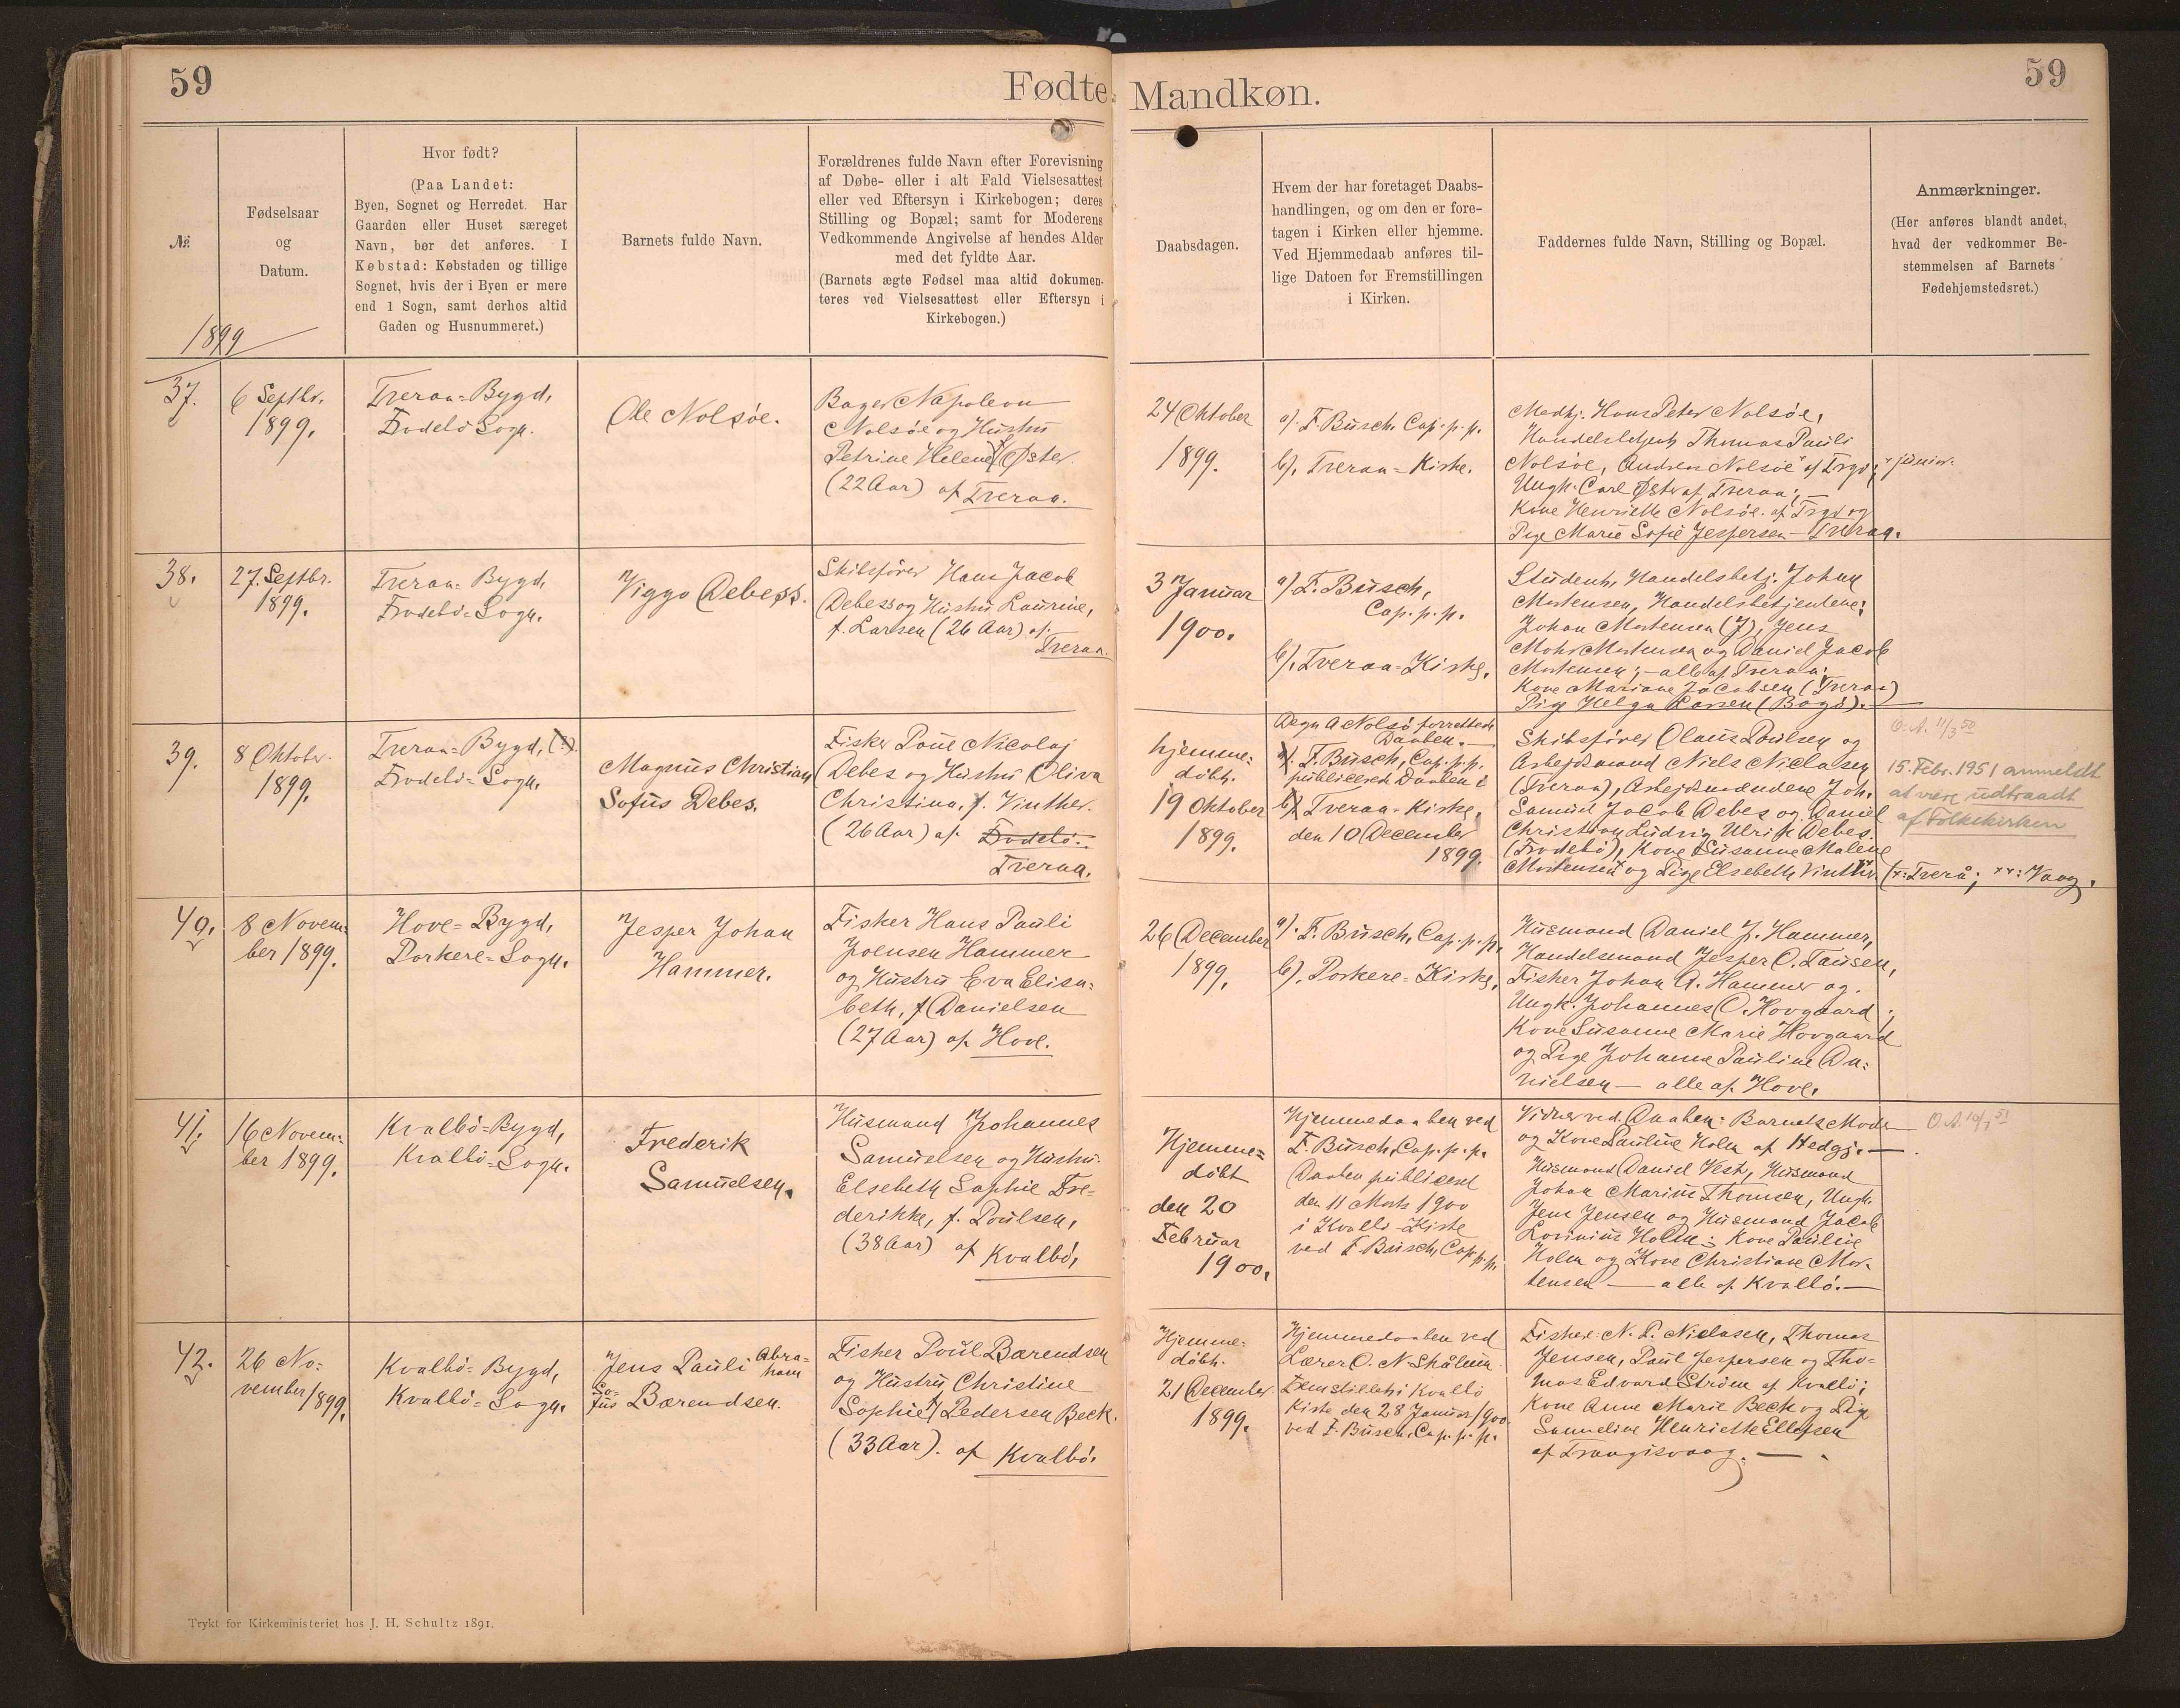 59
Fødte Mandkøn.
59
№
Fødselsaar
og
Datum.
Hvor født?
(Paa Landet:
Byen, Sognet og Herredet. Har
Gaarden eller Huset særeget
Navn, bør det anføres. I
Købstad: Købstaden og tillige
Sognet, hvis der i Byen er mere
end 1 Sogn, samt derhos altid
Gaden og Husnummeret.)
Barnets fulde Navn.
Forældrenes fulde Navn efter Forevisning
af Døbe- eller i alt Fald Vielsesattest
eller ved Eftersyn i Kirkebogen; deres
Stilling og Bopæl; samt for Moderens
Vedkommende Angivelse af hendes Alder
med det fyldte Aar.
(Barnets ægte Fødsel maa altid dokumen-
teres ved Vielsesattest eller Eftersyn i
Kirkebogen.)
Daabsdagen.
Hvem der har foretaget Daabs-
handlingen, og om den er fore-
tagen i Kirken eller hjemme.
Ved Hjemmedaab anføres til-
lige Datoen for Fremstillingen
i Kirken.
Faddernes fulde Navn, Stilling og Bopæl.
Anmærkninger.
(Her anføres blandt andet,
hvad der vedkommer Be-
stemmelsen af Barnets
Fødehjemstedsret.)
1899
37.
6 Septbr.
1899.
Tveraa-Bygd,
Frodebø Sogn.
Ole Nolsøe.
Bager Napoleon
Nolsøe og Hustru
Petrine Helene f. Øster.
(22 Aar) af Tveraa.
24 Oktober
1899.
a). F. Busch. Cap. p. p.
b). Tveraa-Kirke.
Medhj. Hans Peter Nolsøe,
Handelsbetjent Thomas Pauli
Nolsøe, Andreas Nolsøe* af Trgv; * junior.
Ungk. Carl Øster af Tveraa; —
Kone Henriette Nolsøe af Trgv og
Pige Marie Sofie Jespersen — Tveraa.
38.
27. Septbr.
1899.
Tveraa-Bygd,
Frodebø-Sogn.
Viggo Debess.
Skibsfører Hans Jacob
Debess og Hustru Laurine,
f. Larsen (26 Aar) af
Tveraa.
3 Januar
1900.
a) F. Busch,
Cap. p. p.
b). Tveraa-Kirke.
Student, Handelsbetj. Johan
Mortensen, Handelsbetjentene:
Johan Mortensen (J), Jens
Mohr Mortensen og Daniel Jacob
Mortensen; — alle af Tveraa;
Kone Mariane Jacobsen (Tveraa)
Pige Helga Larsen (Bøgø).
39.
8 Oktober
1899.
Tveraa-Bygd, (!).
Frodebø-Sogn.
Magnus Christian
Sofus Debes.
Fisker Poul Nicolaj
Debes og Hustru Oliva
Christina, f. Vinther.
(26 Aar) af Frodebø.
Tveraa.
hjemme-
døbt.
19 Oktober
1899.
Degn A Nolsø forrettede
Daaben. —
a). F. Busch, Cap. p. p.
publicered Daaben i
b) Tveraa-Kirke,
den 10 December
1899.
Skibsfører Olaus Poulsen og
Arbejdsmand Niels Niclasen
(Tveraa), Arbejdsmændene Joh.
Samuel Jacob Debes og Daniel
Christian Ludvig Ulrik Debes.
(Frodebø), Kone Susanne Malene
Mortensen og Pige Elsebeth Vinther. (x: Tverå; xx: Vaag.
O. A. 11/3 50
15. Febr. 1951 anmeldt
at være udtraadt
af Folkekirken
40.
8 Novem-
ber 1899.
Hove-Bygd,
Porkere-Sogn.
Jesper Johan
Hammer.
Fisker Hans Pauli
Joensen Hammer
og Hustru Eva Elisa-
beth, f. Danielsen
(27 Aar) af Hove.
26 December
1899.
a). F. Busch, Cap. p. p.
b). Porkere-Kirke.
Husmand Daniel J. Hammer,
Handelsmand Jesper O. Tausen,
Fisker Johan A. Hammer og
Ungk. Johannes O. Hovgaard;
Kone Susanne Marie Hovgaard
og Pige Johanne Pauline Da-
nielsen — alle af Hove.
41.
16 Novem-
ber 1899.
Kvalbø-Bygd,
Kvalbø-Sogn.
Frederik
Samuelsen.
Husmand Johannes
Samuelsen og Hustru
Elsebeth Sophie Fre-
derikke, f. Poulsen,
(38 Aar) af Kvalbø,
Hjemme-
døbt
den 20
Februar
1900.
Hjemmedaaben ved
F. Busch, Cap. p. p.
Daaben publiceret
den 11 Marts 1900
i Kvalbø-Kirke
ved F. Busch, Cap. p. p.
Vidner ved Daaben: Barnets Moder
og Kone Pauline Holm af Hedgj. —
Husmand Daniel Vest, Husmand
Johan Marius Thomsen, Ungk.
Jens Jensen og Husmand Jacob
Lovinius Holm; Kone Pauline
Holm og Kone Christiane Mor-
tensen — alle af Kvalbø. —
42.
26 No-
vember 1899.
Kvalbø-Bygd,
Kvalbø-Sogn.
Jens Pauli Abra-
ham
So-
fus Bærendsen.
Fisker Poul Bærendsen
og Hustru Christine
Sophie f. Pedersen Beck.
(33 Aar). af Kvalbø.
Hjemme-
døbt.
21 December
1899.
Hjemmedaaben ved
Lærer O. N. Skålum.
Fremstillet i Kvalbø
Kirke den 28 Januar 1900
ved F. Busch, Cap. p. p.
Fisker N. P. Niclasen, Thomas
Jensen, Paul Jespersen og Tho-
mas Edvard Strøm af Kvalbø;
Kone Anne Marie Beck og Pige
Sunneline Henriette Ellefsen
af Trangisvaag. —
Trykt for Kirkeministeriet hos J. H. Schultz 1891.